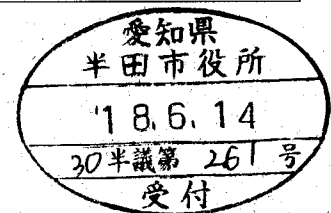 愛知県
半田市役所
'18.6.14
30半議第 261号
受付